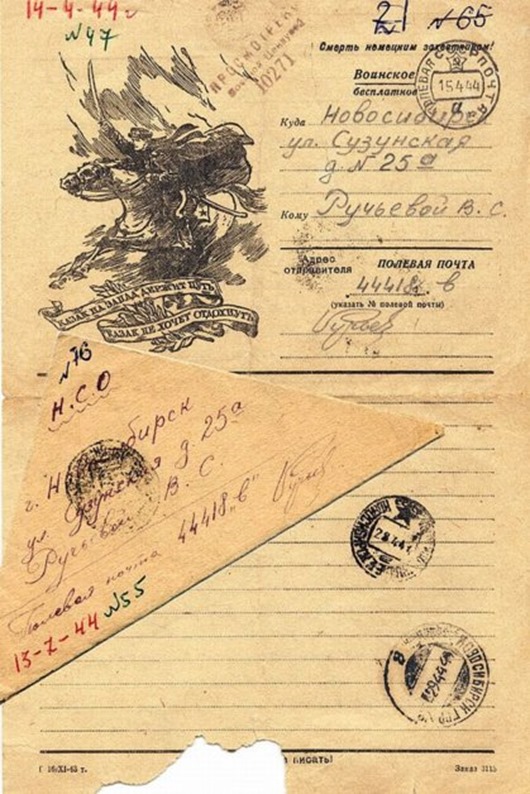 14-4-44г
21 №65
№47
ПРОСМОТРЕНО
Военной Цензурой
10271
Смерть немецким захватчикам!
Воинское
бесплатное
ПОЛЕВАЯ ПОЧТА
15.4.44
а
Куда Новосибирск
ул. Сузунская
д. № 25а
Кому Ручьевой В. С.
Адрес отправителя
ПОЛЕВАЯ ПОЧТА
44418 в
(указать № полевой почты)
КАЗАК НА ЗАПАД ДЕРЖИТ ПУТЬ
КАЗАК НЕ ХОЧЕТ ОТДОХНУТЬ
№76
Н.С.О
г. Новосибирск
ул. Сузунская д. 25а
Ручьевой В. С.
Полевая почта 44418 „в"
13-7-44 №55
28.4.44
НОВОСИБИРСК
29.4.44
писать!
Заказ 3115